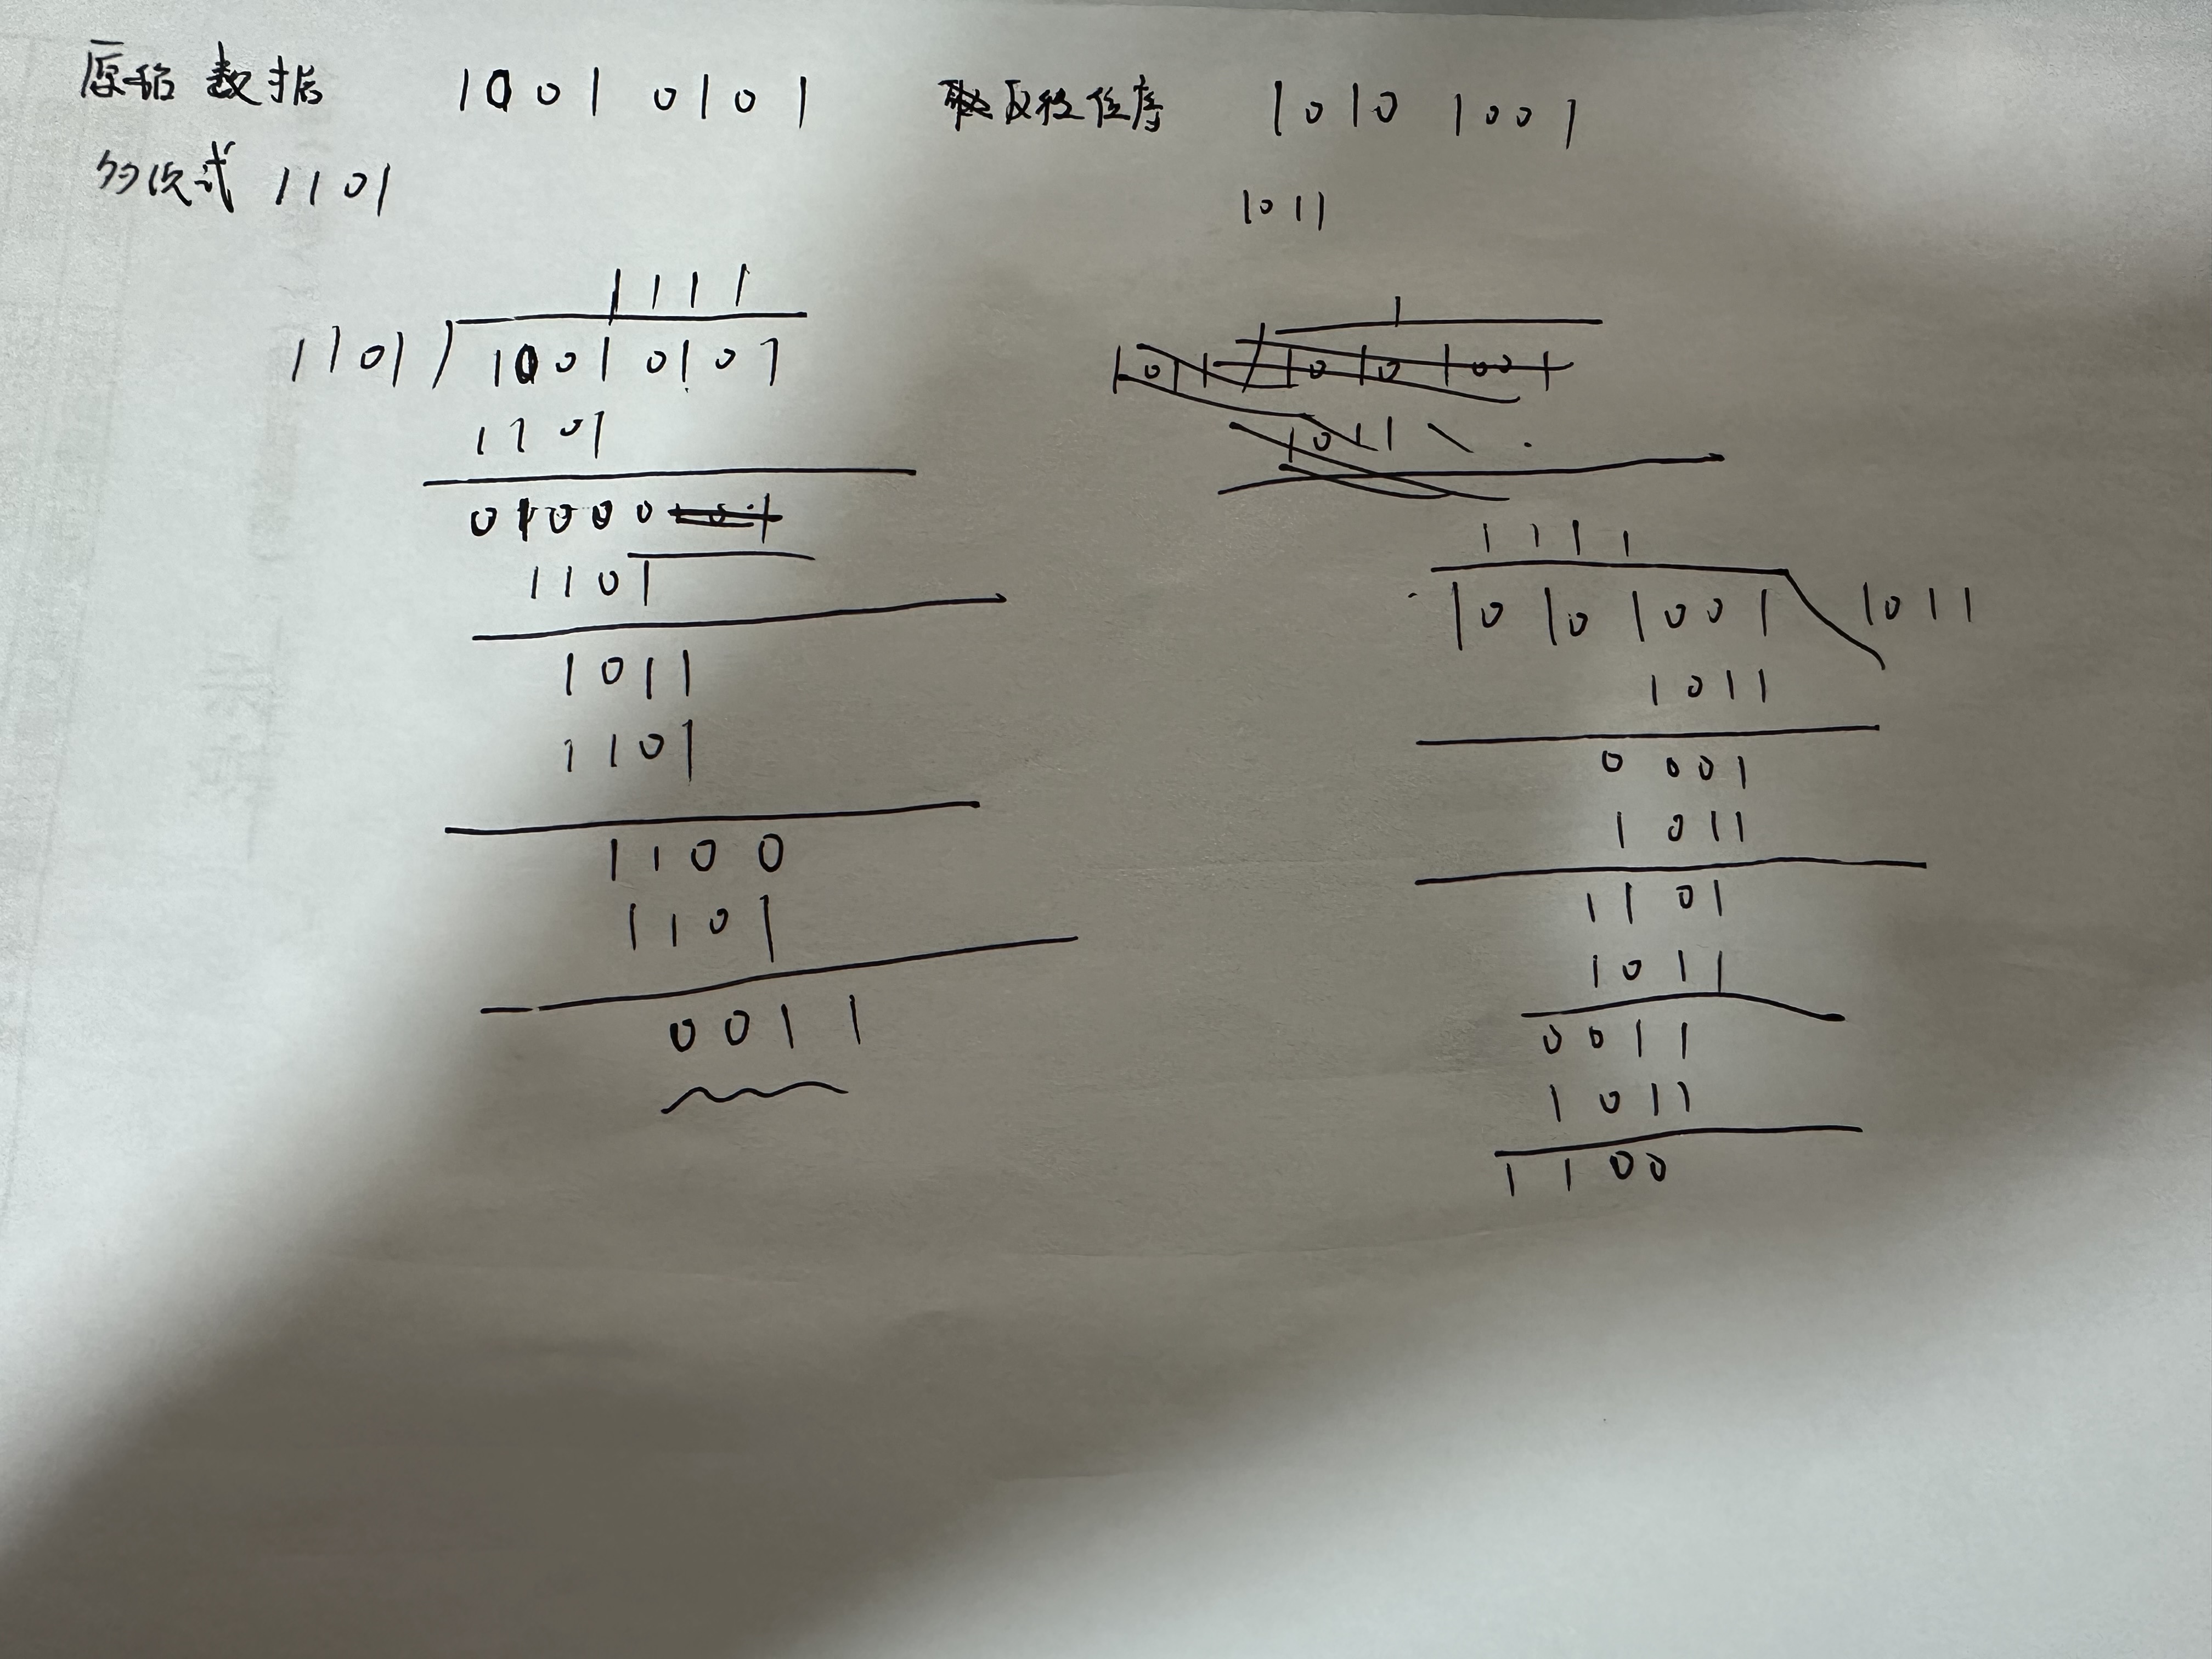 原始数据 1001 0101
多次式 1101
1111
1101 10010101
1101
01000
1101
1011
1101
1100
1101
0011
反转位序 1010 1001
1011
1
1011 1010 1001
1011
1111
10101001 1011
1011
0001
1011
1101
1011
0011
1011
1100